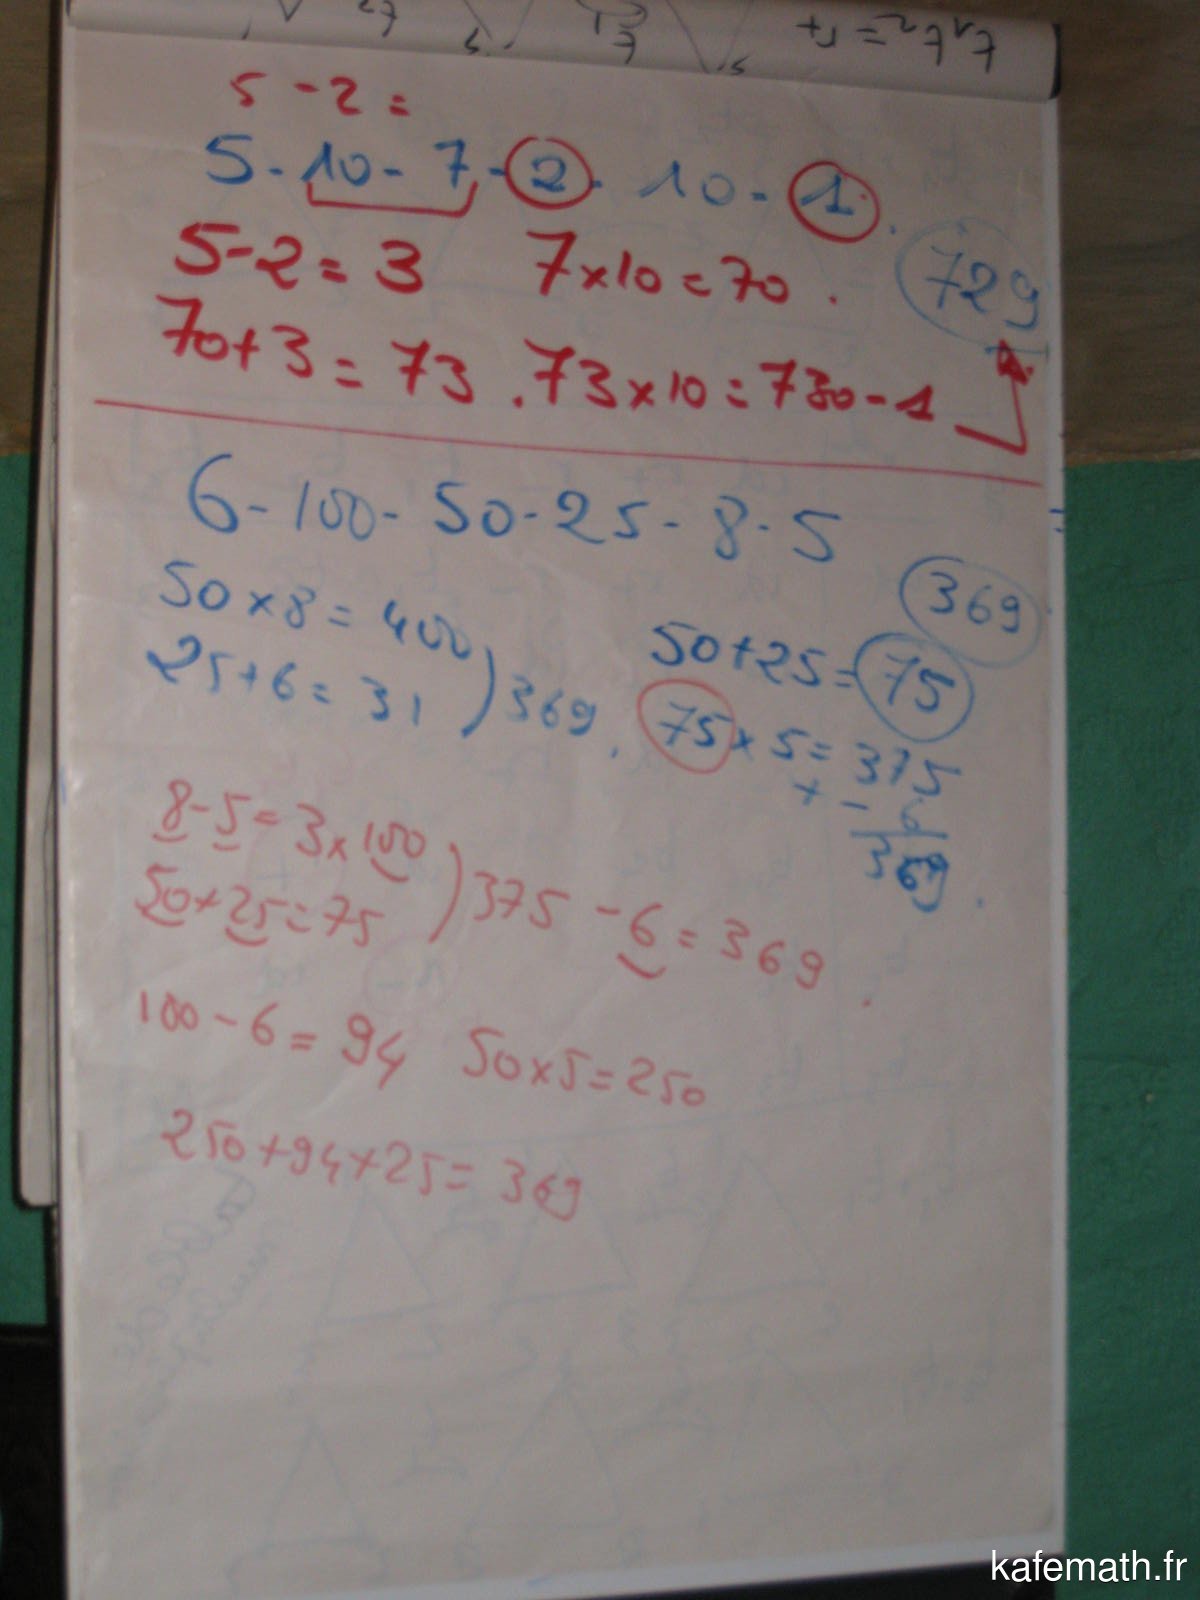 5 - 2 =
5 - 10 - 7 - 2 - 10 - 1.
729
5 - 2 = 3 7 x 10 = 70.
70 + 3 = 73. 73 x 10 = 730 - 1
6 - 100 - 50 - 25 - 8 - 5
369
50 x 8 = 400
25 + 6 = 31 ) 369.
50 + 25 = 75
75 x 5 = 375
+ - 6
369.
8 - 5 = 3 x 100
50 + 25 = 75 ) 375 - 6 = 369.
100 - 6 = 94 50 x 5 = 250
250 + 94 + 25 = 369
kafemath.fr